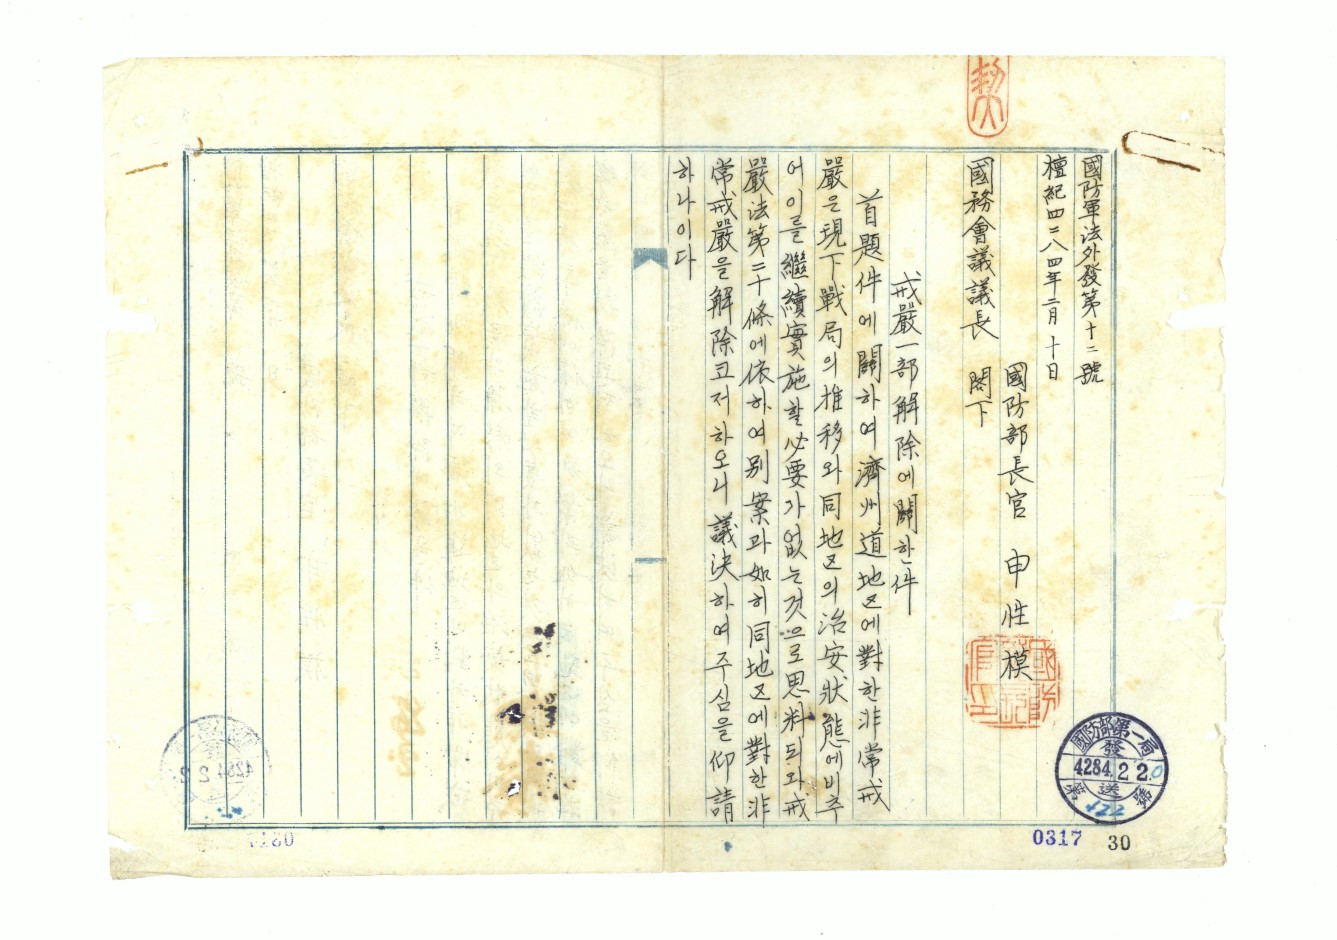 國防軍法外發第十二號
檀紀四二八四年二月十日
國防部長官 申性模
國務會議議長 閣下
戒嚴一部解除에關한件
首題件에關하여濟州道地区에對한非常戒
嚴은現下戰局의推移와同地区의治安狀態에비추
어이를繼續實施할必要가없는것으로思料되와戒
嚴法第二十條에依하여別案과如히同地区에對한非
常戒嚴을解除코저하오니議決하여주심을仰請
하나이다
國防部第一局
發
4284 2 20
送
第 122 號
0317 30